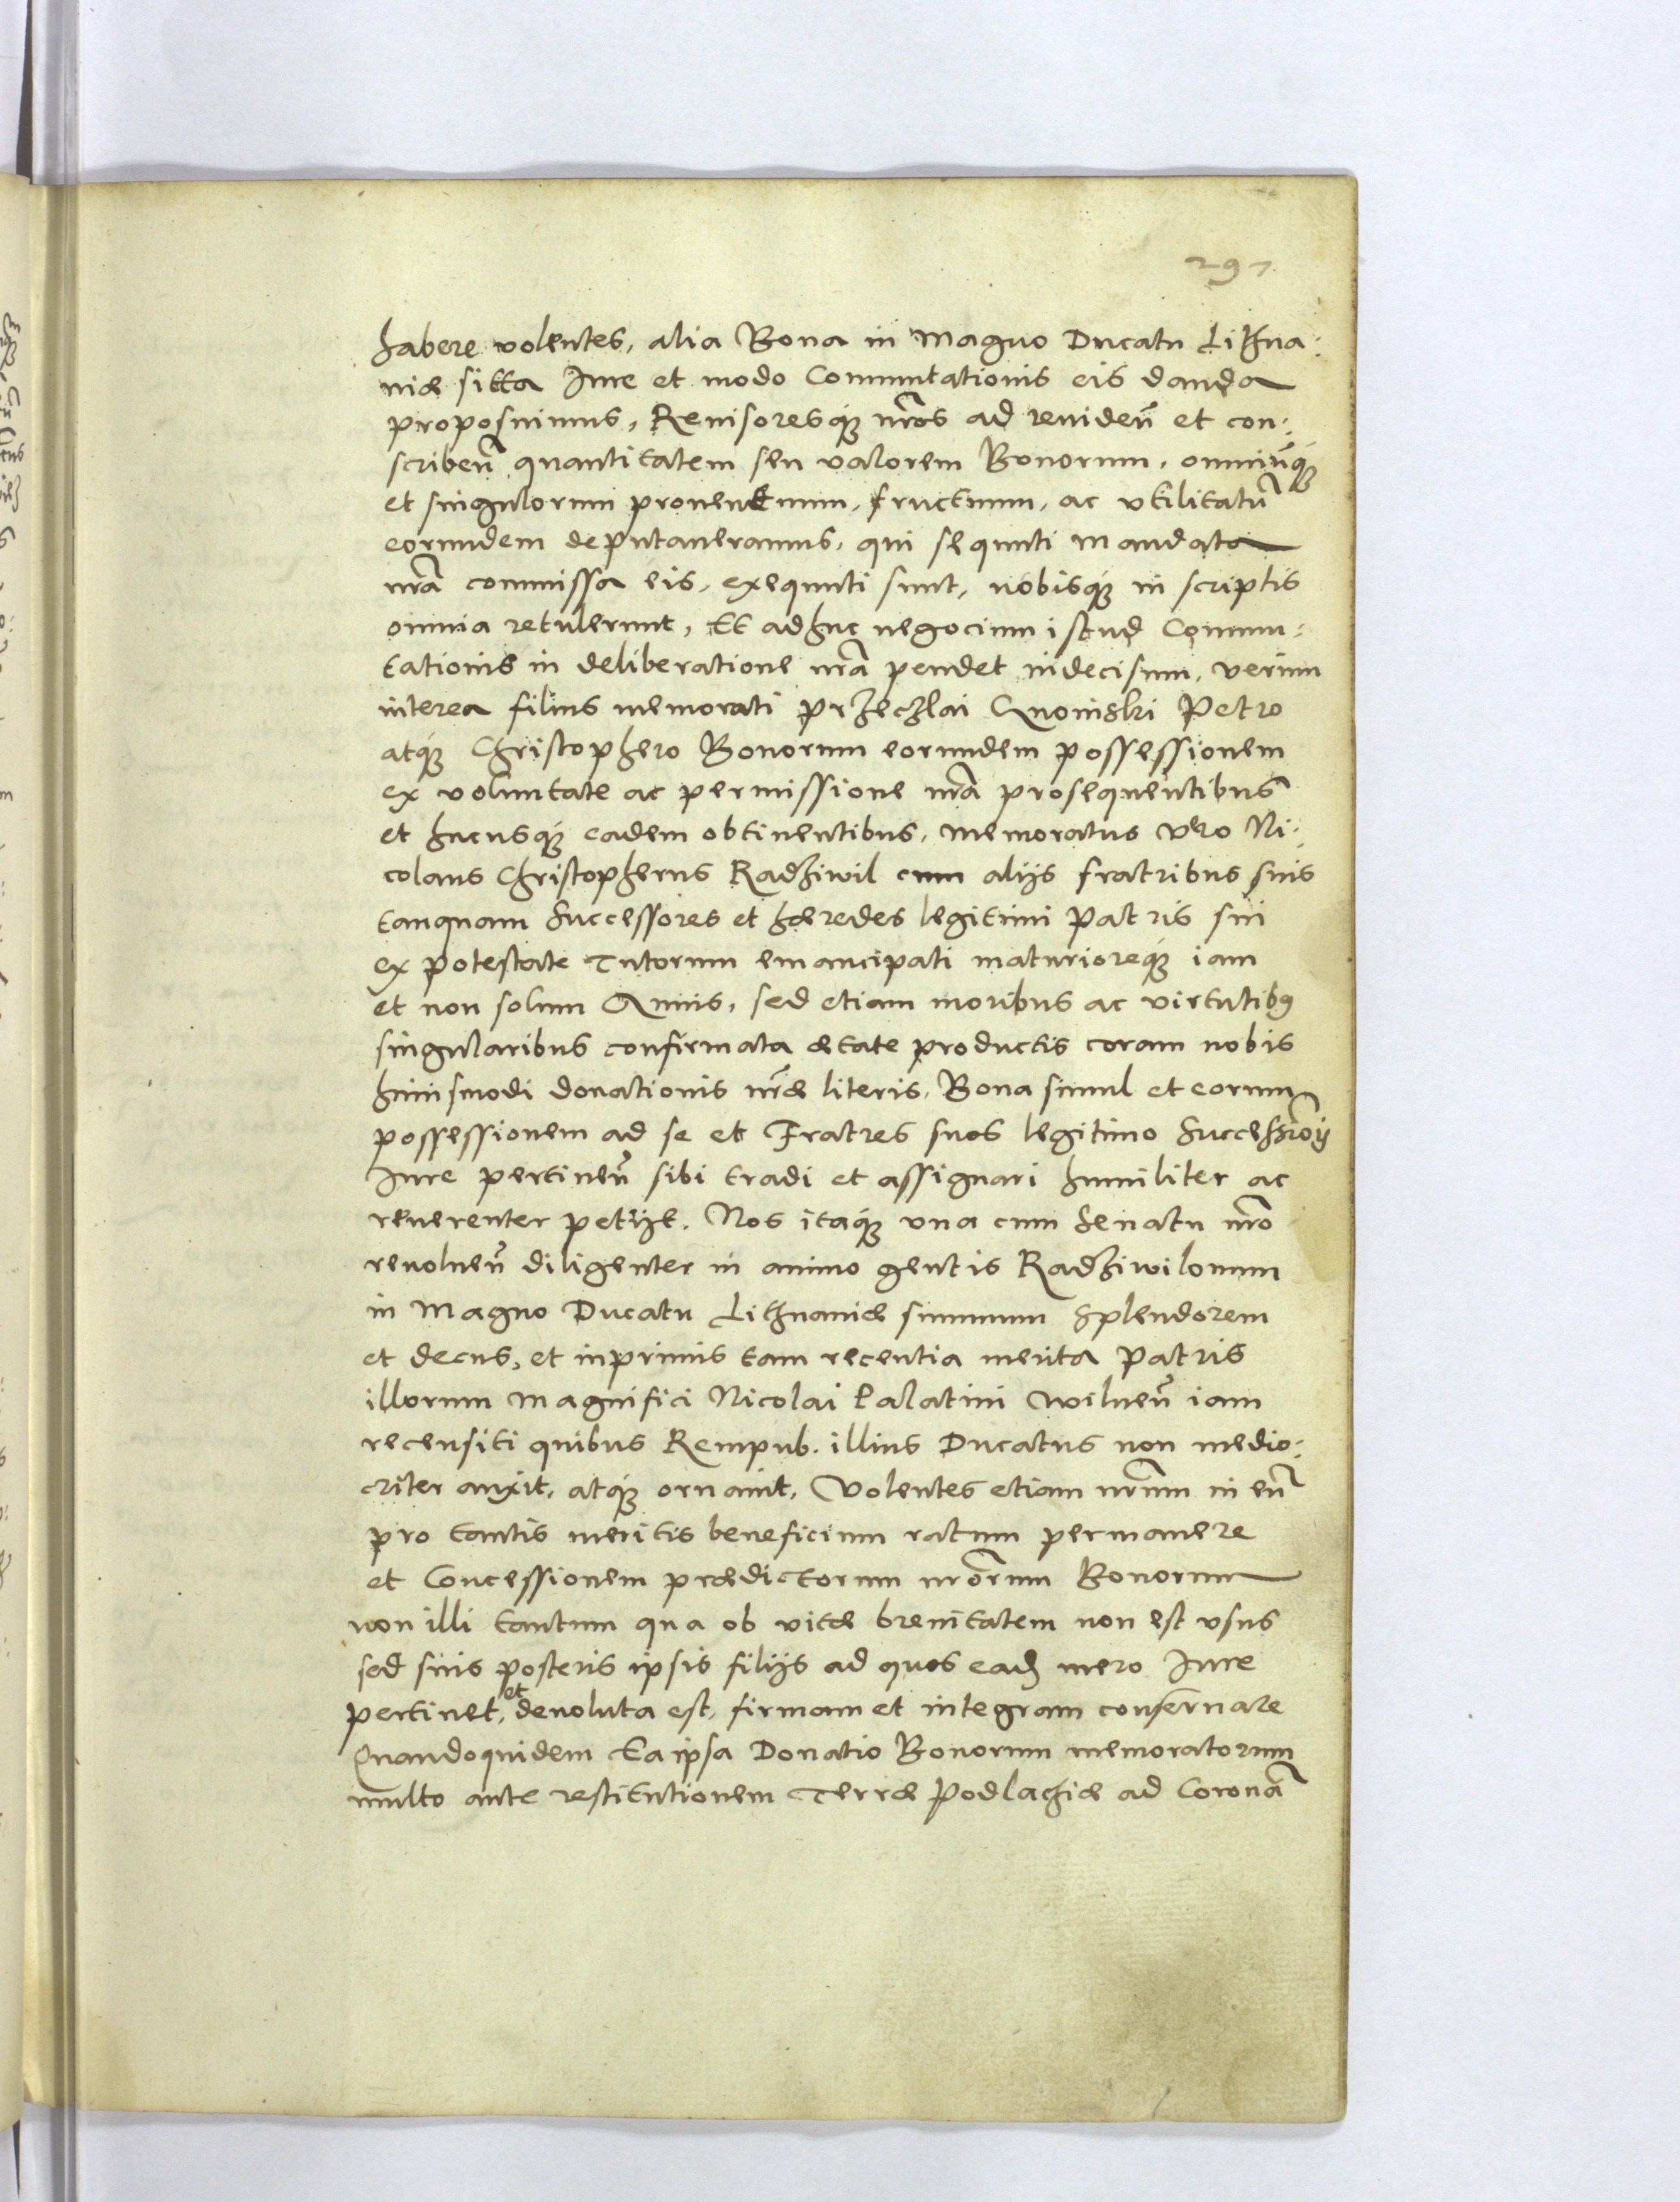 297
habere volentes, alia Bona in Magno Ducatu Lithua:
niæ sitta Iure et modo Commutationis eis danda
proposuimus, Reuisoresq; nr̃os ad reuideñ et con:
scribeñ quantitatem seu valorem Bonorum, omniũq;
et singulorum prouentuum, fructuum, ac vtilitatũ
eorundem deputaueramus, qui sequuti mandata
nr̃a commissa eis, exequuti sunt, nobisq; in scriptis
omnia retulerunt, Et adhuc negocium istud Commu:
tationis in deliberatione nr̃a pendet indecisum, verum
interea filius memorati Przeczlai Gnoinski Petro
atq; Christophero Bonorum eorundem possessionem
ex voluntate ac permissione nr̃a prosequentibus
et hucusq; eadem obtinentibus, memoratus vero Ni:
colaus Christopherus Radziwil cum alijs fratribus suis
tanquam Successores et hæredes legitimi Patris sui
ex potestate Tutorum emancipati maturioreq; iam
et non solum Annis, sed etiam moribus ac virtutibꝰ
singularibus confirmata ætate productis coram nobis
huiusmodi donationis nr̃æ literis, Bona simul et eorum
possessionem ad se et Fratres suos legitimo Successiõis
Iure pertineñ sibi tradi et assignari humiliter ac
reuerenter petijt. Nos itaq; vna cum Senatu nr̃o
reuolueñ diligenter in animo gentis Radziwilonum
in Magno Ducatu Lithuaniæ summum Splendorem
et decus, et inprimis tam recentia merita Patris
illorum Magnifici Nicolai Palatini Wilneñ iam
recensiti quibus Rempub. illius Ducatus non medio:
criter auxit, atq; ornauit, Volentes etiam nr̃um in eũ
pro tantis meritis beneficium ratum permanere
et Concessionem prædictorum nr̃orum Bonorum
non illi tantum qua ob vitæ breuitatem non est vsus
sed suis posteris ipsis filijs ad quos eadẽ mero Iure
pertinet, et deuoluta est, firmam et integram conseruare
Quandoquidem Ea ipsa Donatio Bonorum memoratorum
multo ante restitutionem Terræ Podlachiæ ad Coronã